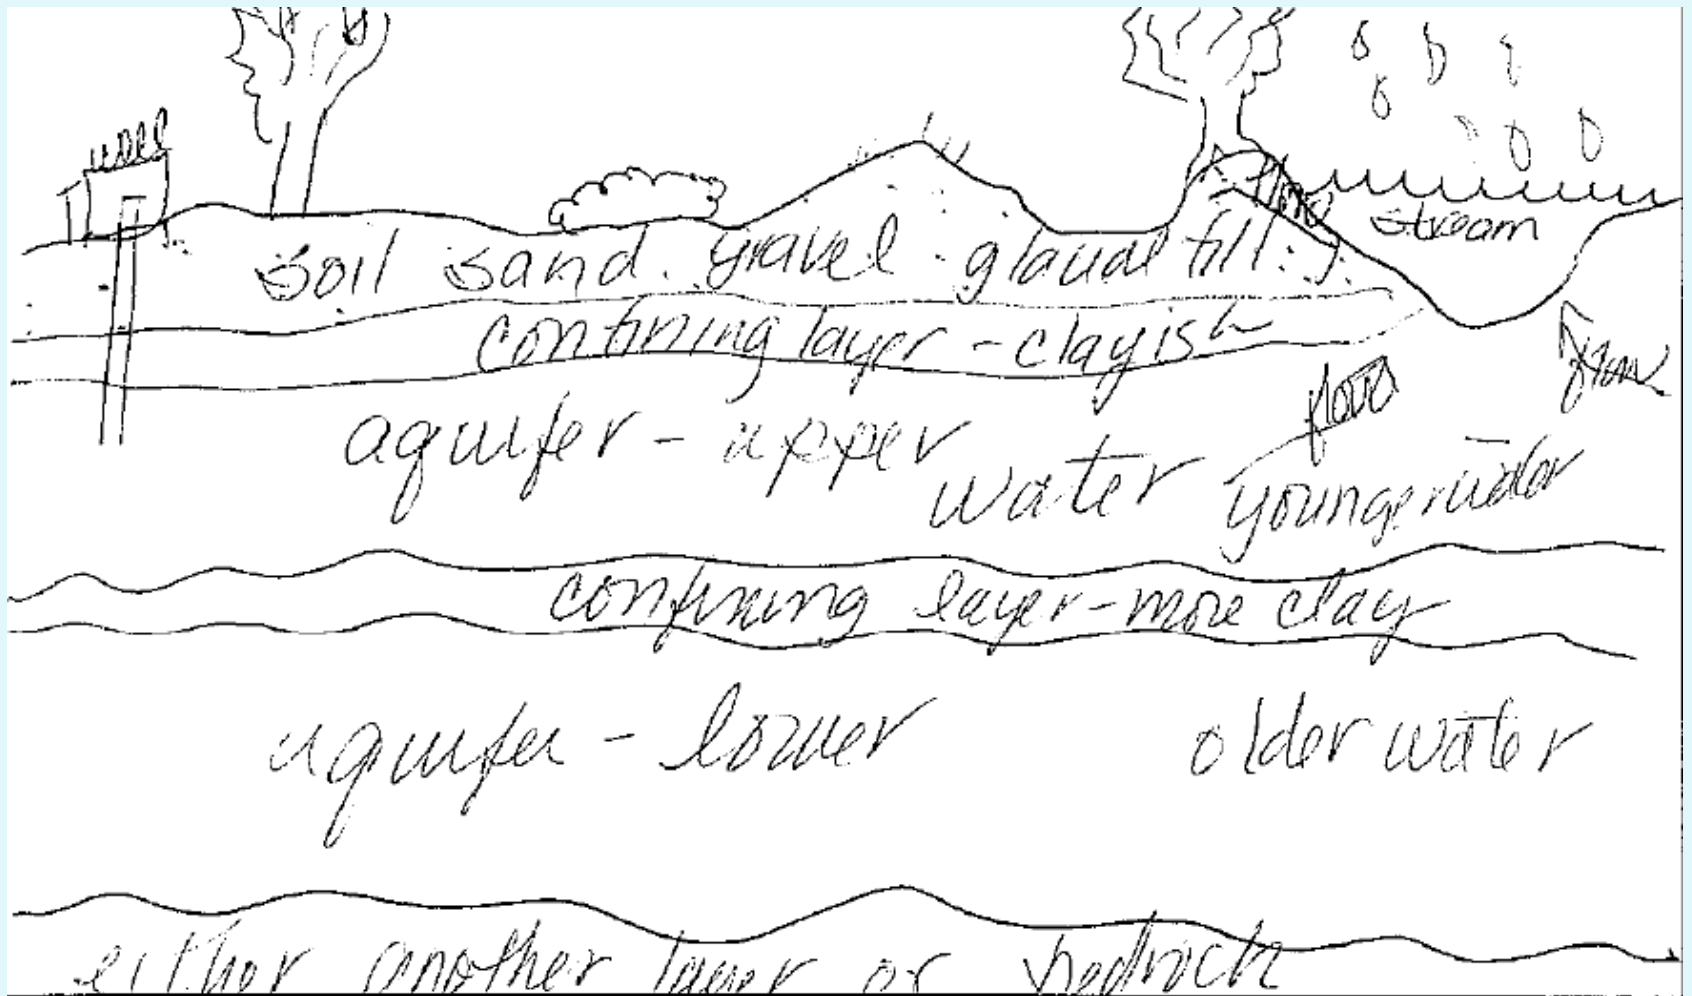 well
flow
stream
soil sand. gravel. glacial till.
confining layer - clayish
flow
flow
aquifer - upper
water younger water
confining layer - more clay
aquifer - lower older water
either another layer or bedrock